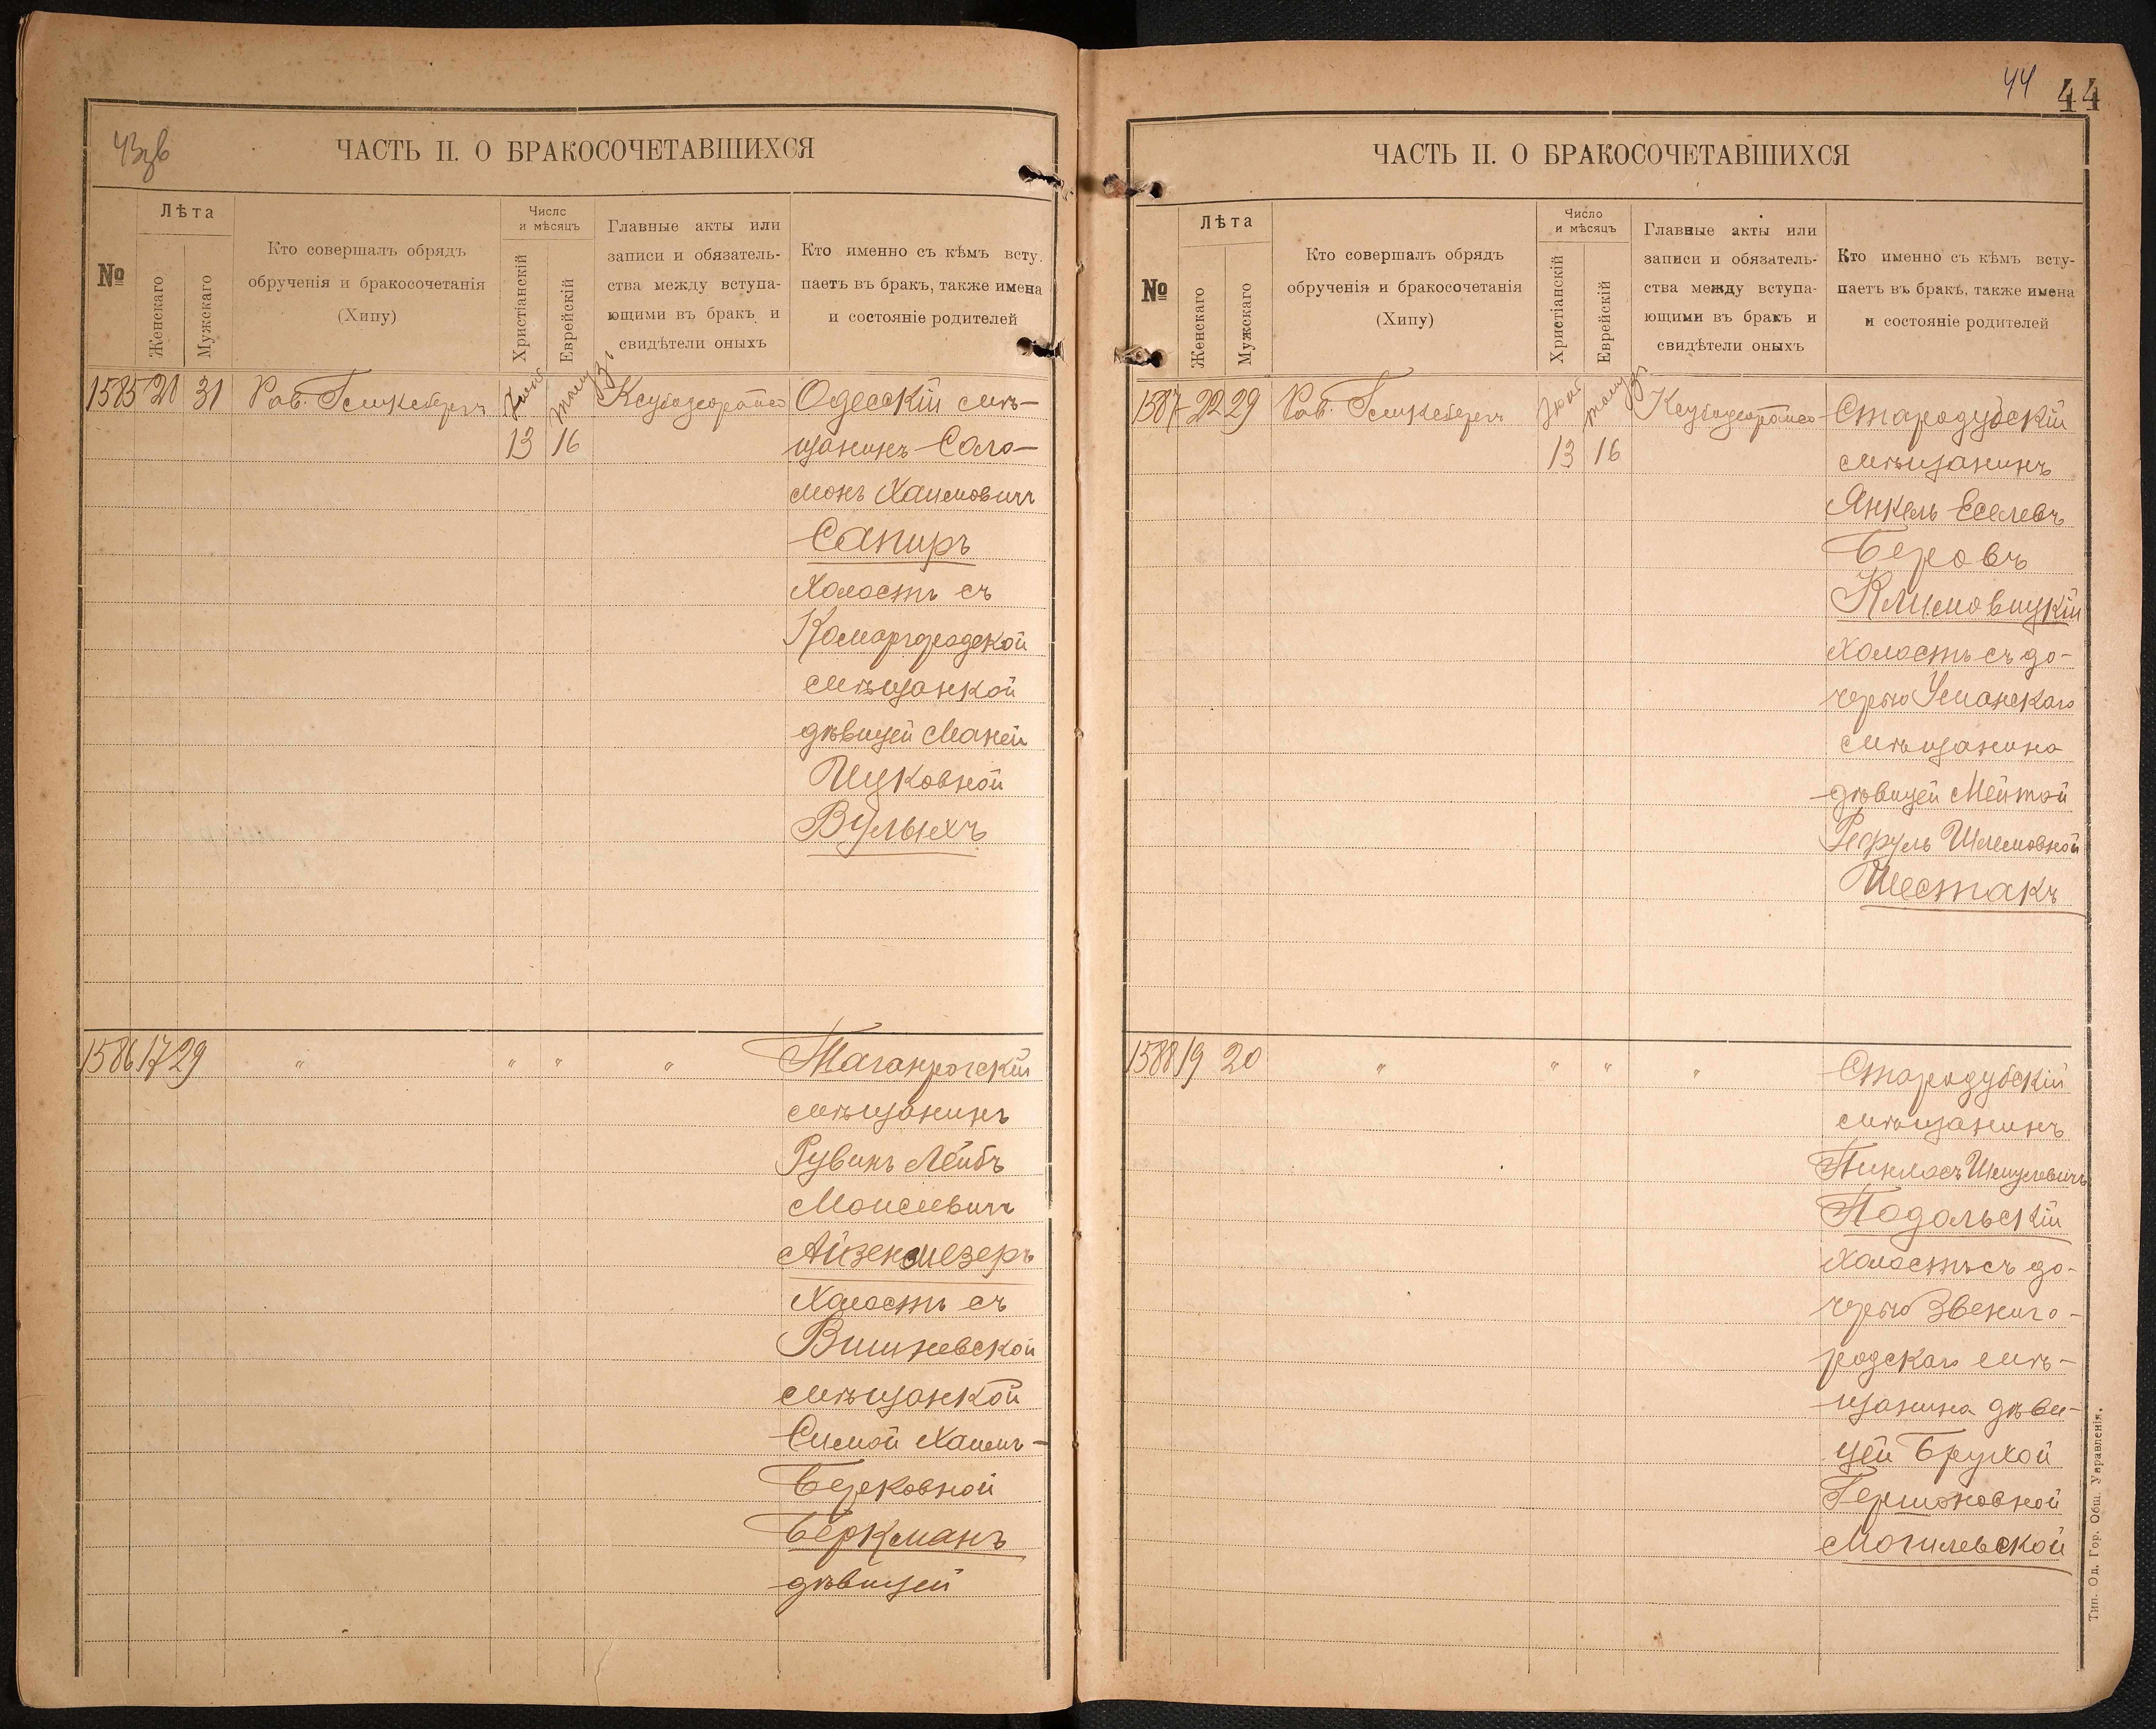 43 зв
ЧАСТЬ II. О БРАКОСОЧЕТАВШИХСЯ
№
Лѣта
Женскаго
Мужскаго
Кто совершалъ обрядъ
обрученія и бракосочетанія
(Хипу)
Числс
и мѣсяцъ
Христіанскій
Еврейскій
Главные акты или
записи и обязатель-
ства между вступа-
ющими въ бракъ и
свидѣтели оныхъ
Кто именно съ кѣмъ всту.
паетъ въ бракъ, также имена
и состояніе родителей
1585 21 31 Рав.
13 16
Одесскій мѣ-
щанинъ Соло-
монъ Хаимовичъ
Сапиръ
Холостъ съ
Комаргородской
мѣщанкой
дѣвицей Маней
Ицковной
Вулыхъ
1586 17 29 " " " "
Таганрогскій
мѣщанинъ
Рувинъ Лейбъ
Моисеевичъ
Айзенмезеръ
Холостъ съ
Вишневской
мѣщанкой
Симой Хаимъ-
Берковной
Беркманъ
дѣвицей
44 44
ЧАСТЬ II. О БРАКОСОЧЕТАВШИХСЯ
№
Лѣта
Женскаго
Мужскаго
Кто совершалъ обрядъ
обрученія и бракосочетанія
(Хипу)
Число
и мѣсяцъ
Христіанскій
Еврейскій
Главные акты или
записи и обязатель-
ства между вступа-
ющими въ бракъ и
свидѣтели оныхъ
Кто именно съ кѣмъ всту-
паетъ въ бракъ, также имена
и состояніе родителей
1587 22 29 Рав.
13 16
Стародубскій
мѣщанинъ
Янкель Еселевъ
Беровъ
Климовицкій
Холостъ съ до-
черью Уманскаго
мѣщанина
дѣвицей Мейтой
Рефуль Шлемовной
Шестакъ
1588 19 20 " " " "
Стародубскій
мѣщанинъ
Пинхосъ Шмулевичъ
Подольскій
Холостъ съ до-
черью Звениго-
родскаго мѣ-
щанина дѣви-
цей Брухой
Гершоновной
Могилевской
Тип. Од. Гор. Общ. Управленія.